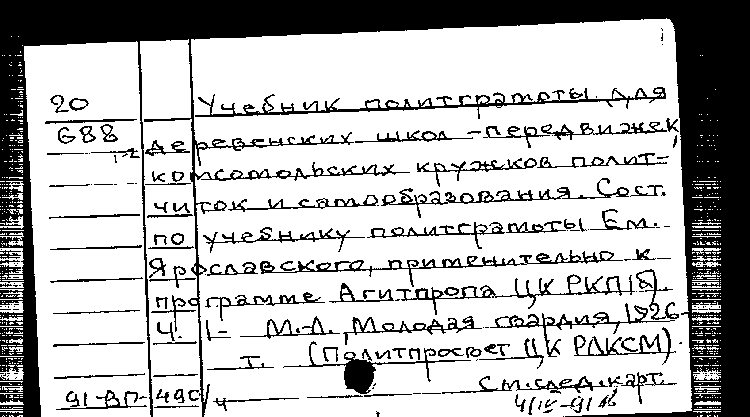 20 Учебник политграмоты для
688 деревенских школ-передвижек,
1-2 комсомольских кружков полит=
читок и самообразования. Сост.
по учебнику политграмоты Ем.
Ярославского, применительно к
программе Агитпропа ЦК РКП(б).
Ч. 1- М.-Л., Молодая гвардия, 1926-
т. (Политпросвет ЦК РЛКСМ).
См. след. карт.
91-ВП-490/4